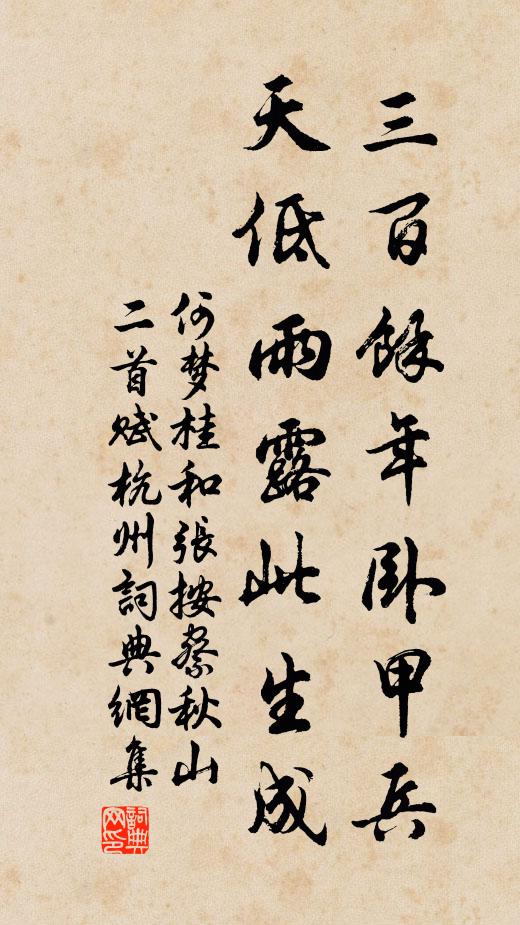 三百餘年卧甲兵
天低雨露此生成
何梦桂和張按察秋山
二首赋杭州詞典網集
詞典网印